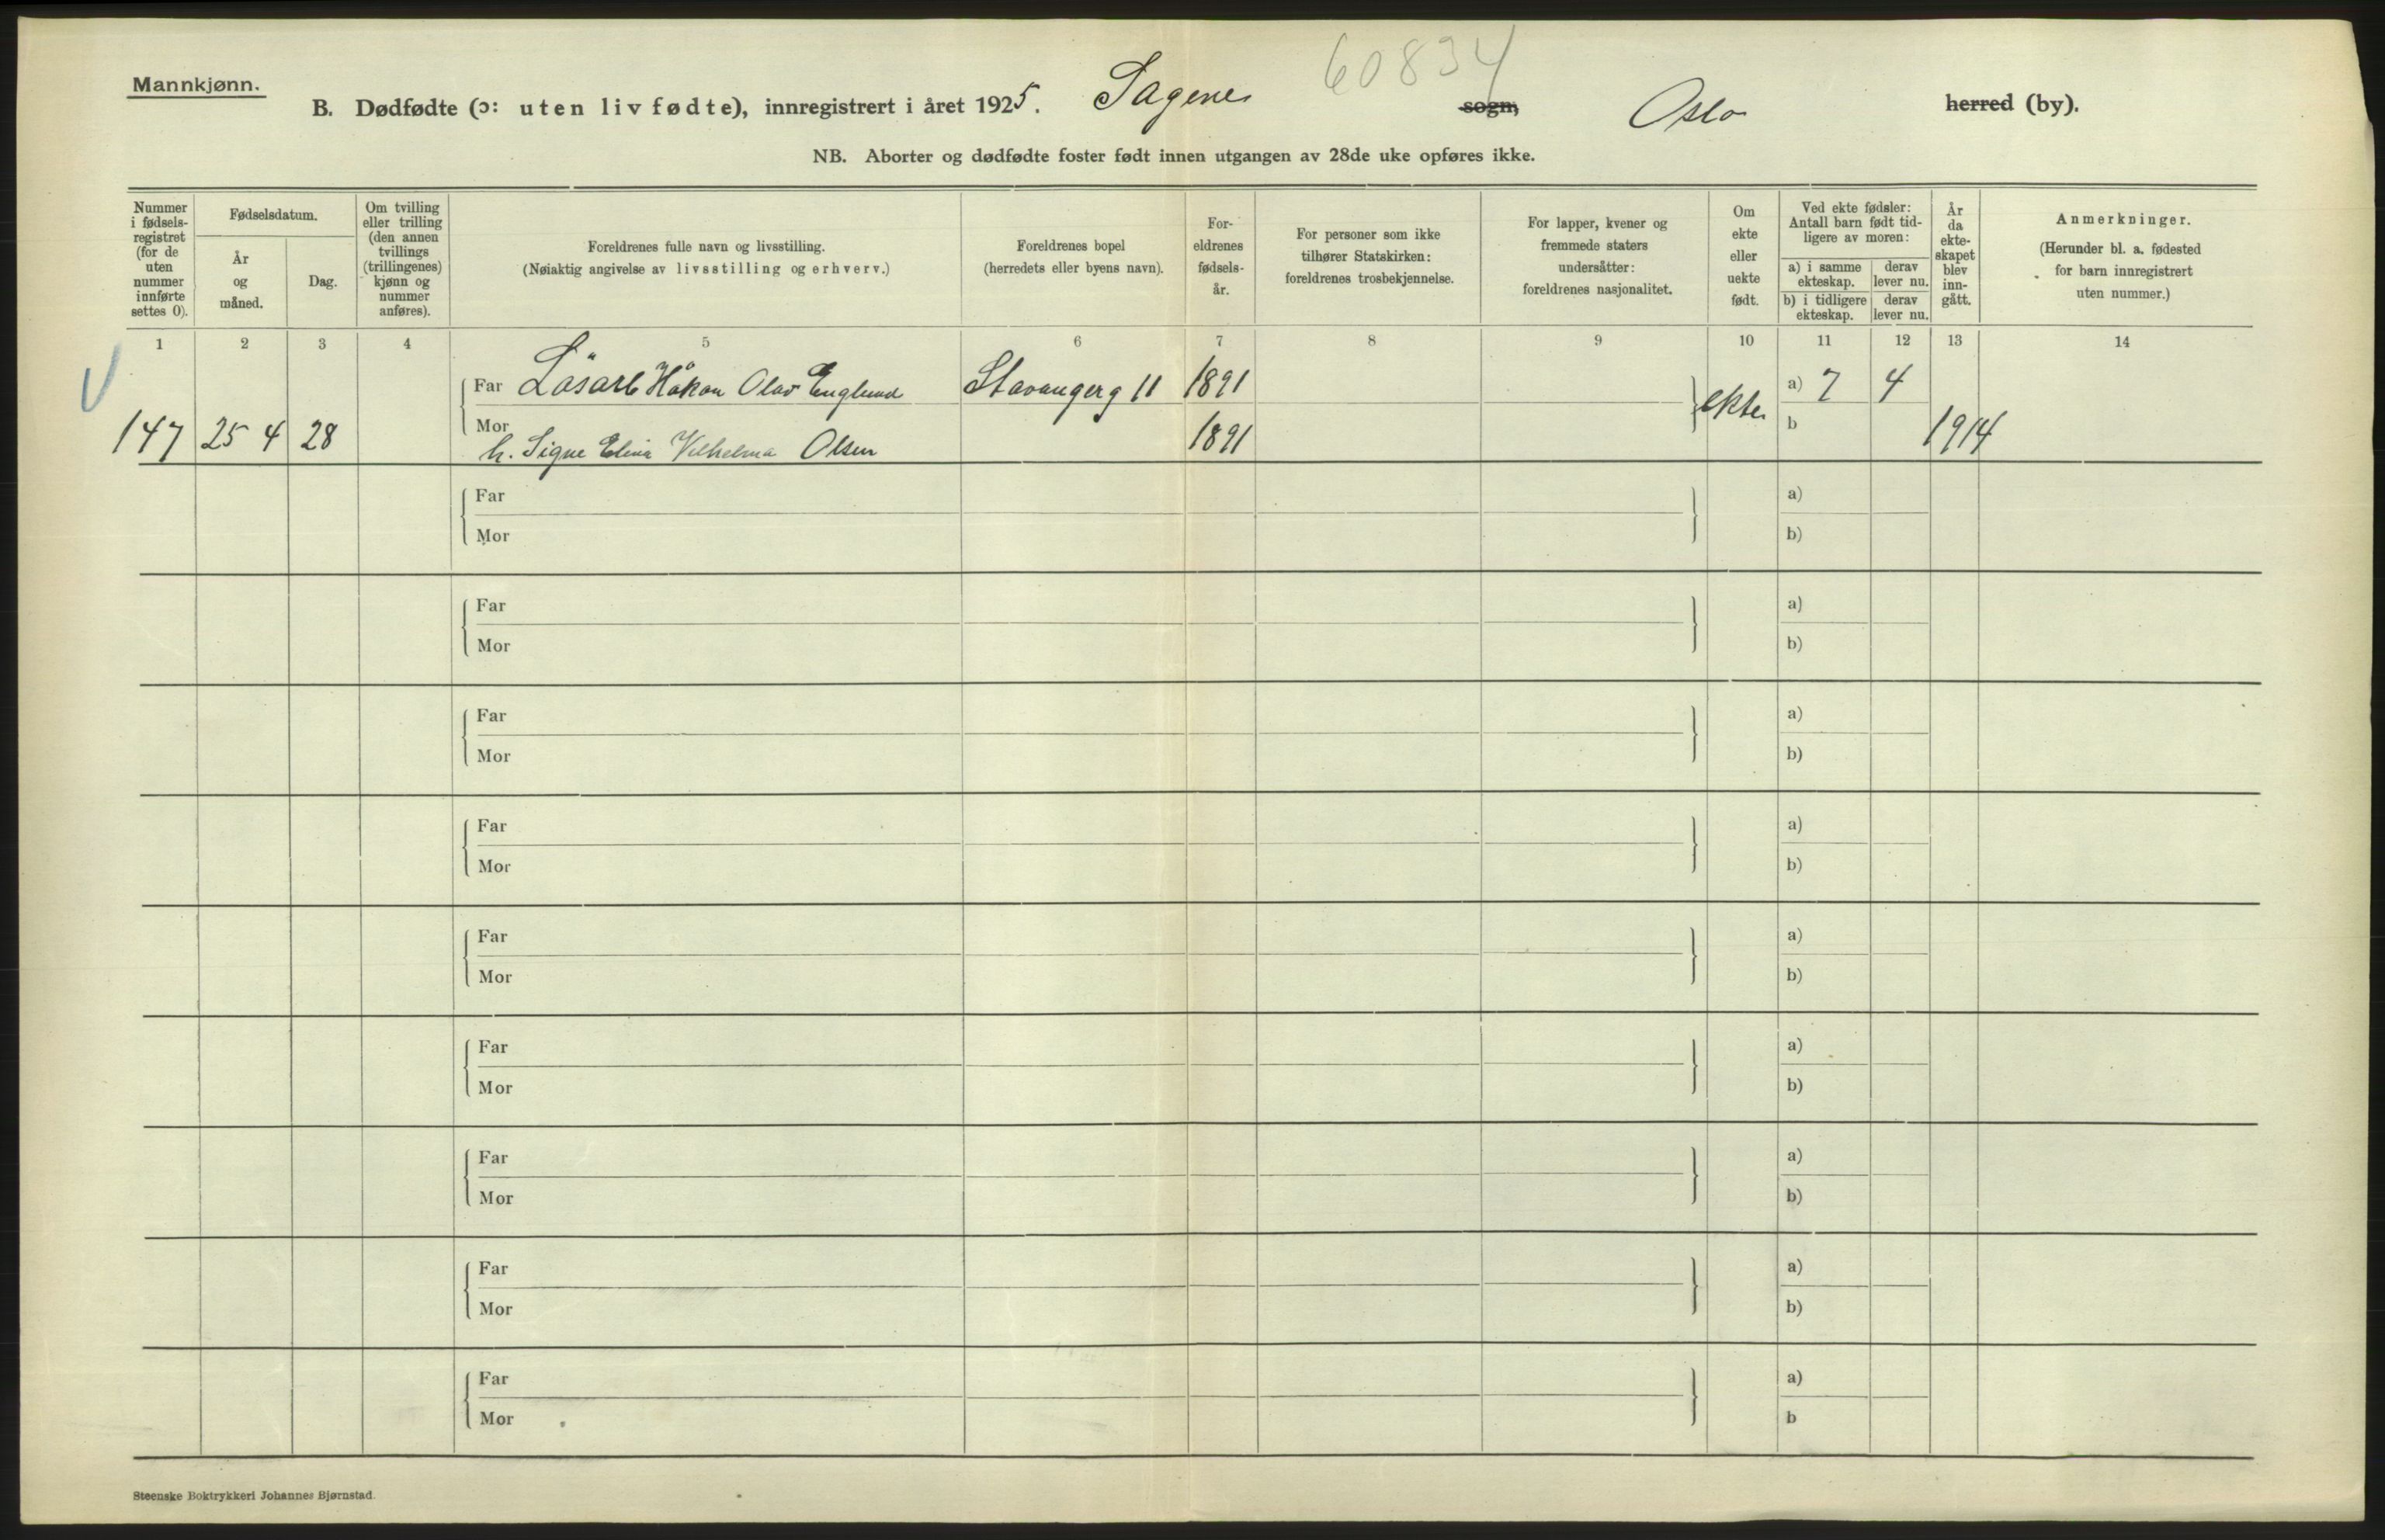 Mannkjønn.
60834
B. Dødfødte (ɔ: uten liv fødte), innregistrert i året 1925. Sagenes sogn, Oslo herred (by).
NB. Aborter og dødfødte foster født innen utgangen av 28de uke opføres ikke.
Nummer i fødsels-registret (for de uten nummer innførte settes 0).
Fødselsdatum.
År og måned.
Dag.
Om tvilling eller trilling (den annen tvillings (trillingenes) kjønn og nummer anføres).
Foreldrenes fulle navn og livsstilling.
(Nøiaktig angivelse av livsstilling og erhverv.)
Foreldrenes bopel
(herredets eller byens navn).
For-eldrenes fødsels-år.
For personer som ikke tilhører Statskirken: foreldrenes trosbekjennelse.
For lapper, kvener og fremmede staters undersåtter: foreldrenes nasjonalitet.
Om ekte eller uekte født.
Ved ekte fødsler: Antall barn født tid-ligere av moren:
a) i samme ekteskap.
derav lever nu.
b) i tidligere ekteskap.
derav lever nu.
År da ekte-skapet blev inn-gått.
Anmerkninger.
(Herunder bl. a. fødested for barn innregistrert uten nummer.)
1 2 3 4 5 6 7 8 9 10 11 12 13 14
Far Løsarb Håkon Olav Englund Stavangerg 11 1891 ekte a) 7 4
147 25 4 28 Mor h. Signe Elina Vilhelma Olsen 1891 b 1914
Far a)
Mor b)
Far a)
Mor b)
Far a)
Mor b)
Far a)
Mor b)
Far a)
Mor b)
Far a)
Mor b)
Far a)
Mor b)
Far a)
Mor b)
Far a)
Mor b
Steenske Boktrykkeri Johannes Bjørnstad.